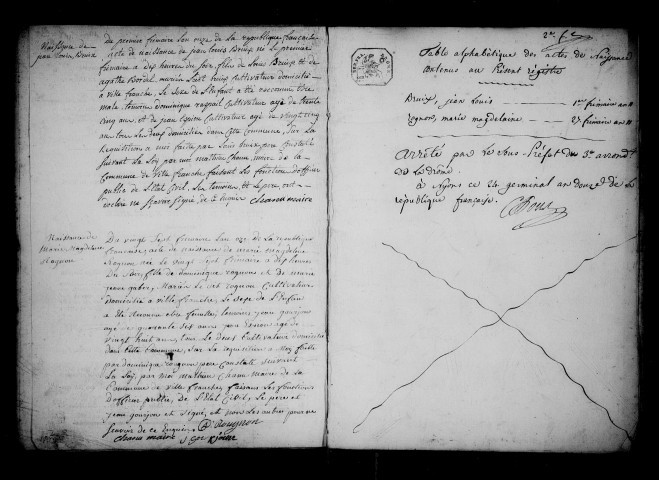 Naissance de
jean Louis Bruix
du premier frimaire l'an onze de la republique française
acte de naissance de jean Louis Bruix né le premier
frimaire a dix heures du soir, fils de Louis Bruix et de
agathe Bordel mariés, Ledt bruix Cultivateur domicilié
a ville franche, le sexe de L'enfant a été reconnu être
male. temoins dominique Cultivateur agé de trente
cinq ans, et de jean Cultivateur agé de vingt cinq
ans tous les deux domiciliés dans cette Commune, Sur la
requisition a moi faite par Louis bruix, pere Constaté
suivant La Loy par moi mathieu Chanu, maire de la
Commune de ville franche, faisant les fonctions d'officier
public de L'Etat Civil, Les temoins et Le pere ont
declaré ne sçavoir signé, de ce requis Chanu maire
Naissance de
Marie Magdelaine
Rognon
Du vingt sept frimaire l'an onze de La republique
francaise, acte de naissance de marie magdelaine
Rognon née le vingt sept frimaire a dix heures
Du soir, fille de dominique rognon et de marie
jeanne mariés Le dit rognon Cultivateur
domicilié a ville franche, Le sexe de L'enfant
a été reconnu etre femelle, temoins jean gourjon
agé de quarante six ans, agé de
vingt huit ans, tous Les deux Cultivateurs domiciliés
dans cette Commune, Sur la requisition a moy faite
par dominique rognon pere Constaté suivant
La Loy, par moi mathieu Chanu maire de la
Commune de ville franche, faisant Les fonctions
d'officier public, de L'Etat Civil, Le pere et
jean gourjon ont signé, et non Les autres pour ne
sçavoir de ce Enquis D Rougnon
Chanu maire
Table alphabétique des actes de Naissances
contenus au Présent régistre
Bruix, jean Louis 1er frimaire an 11
rognon, marie magdelaine 27 frimaire an 11
Arrêté par le Sous-Préfet du 3e arrondt
de la drome.
à Nyons ce 24 germinal an douze de la
république française.